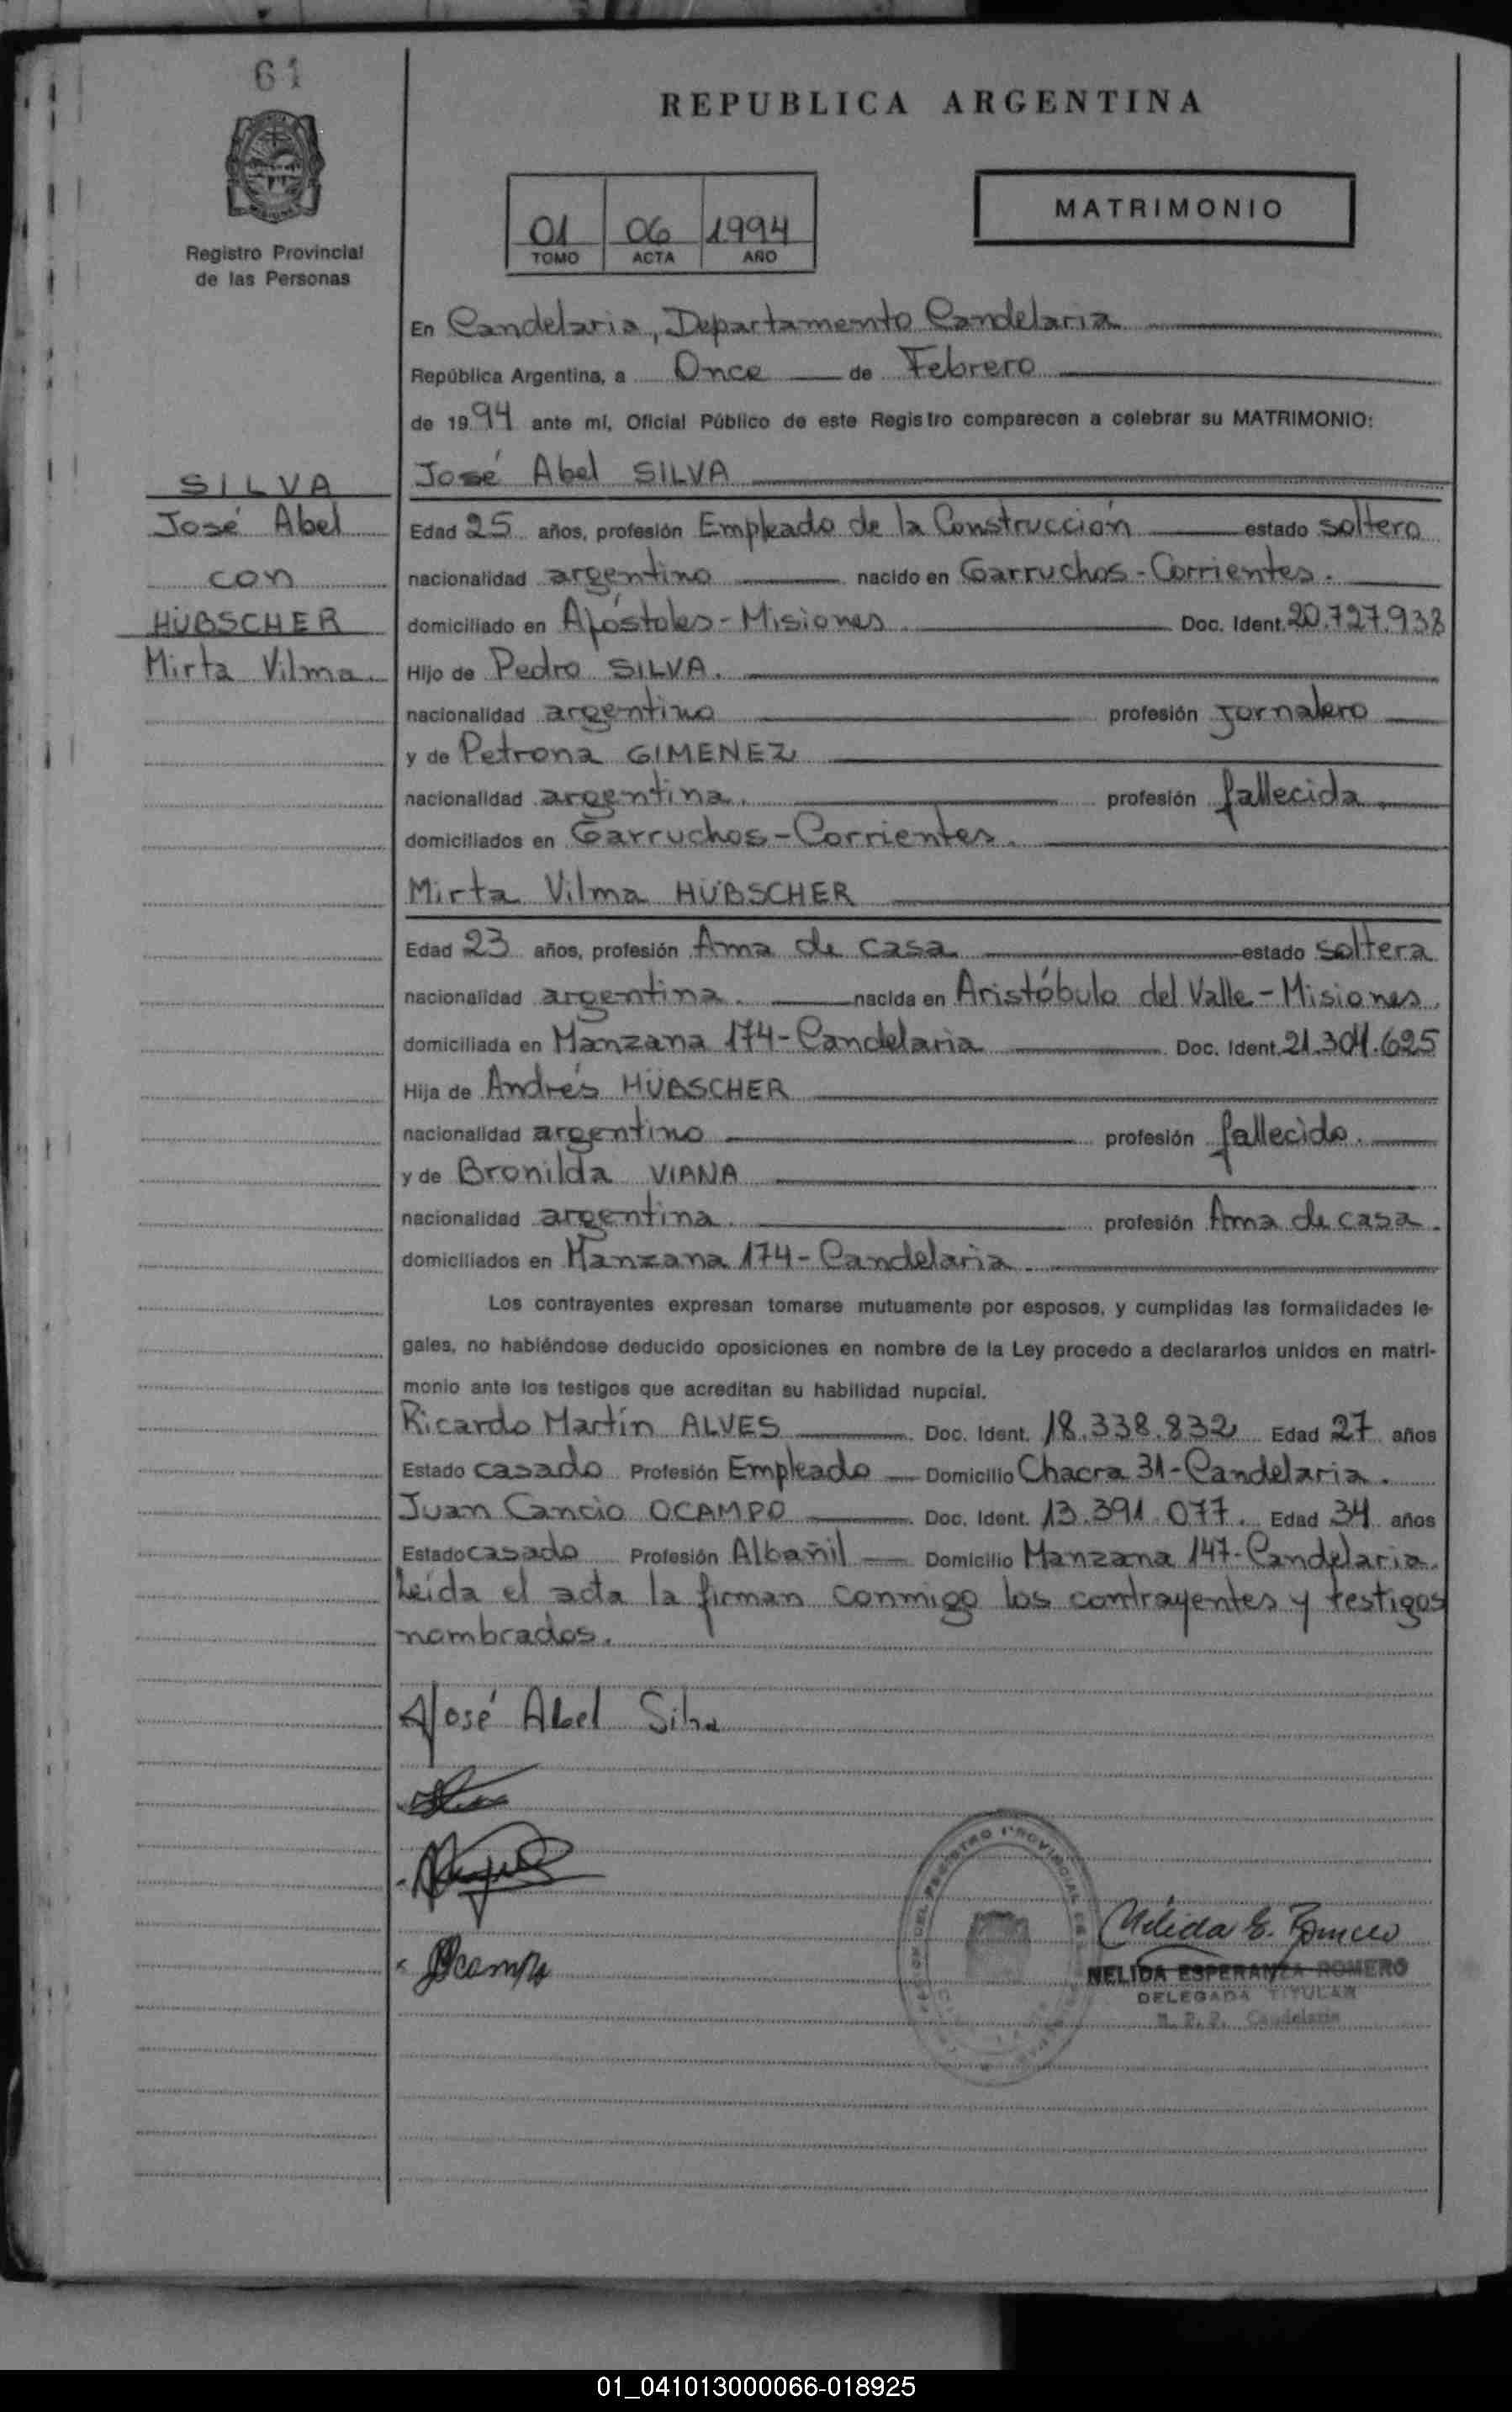 61
REPUBLICA ARGENTINA
MATRIMONIO
01 06 1994
TOMO ACTA AÑO
Registro Provincial
de las Personas
En Candelaria, Departamento Candelaria
República Argentina, a Once de Febrero
de 1994 ante mi, Oficial Público de este Registro comparecen a celebrar su MATRIMONIO:
SILVA
José Abel
con
HÜBSCHER
Mirta Vilma.
José Abel SILVA
Edad 25 años, profesión Empleado de la Construcción estado soltero
nacionalidad argentino nacido en Garruchos - Corrientes.
domiciliado en Apóstoles - Misiones. Doc. Ident. 20.727.938
Hijo de Pedro SILVA.
nacionalidad argentino profesión jornalero
y de Petrona GIMENEZ
nacionalidad argentina. profesión fallecida
domiciliados en Garruchos - Corrientes.
Mirta Vilma HÜBSCHER
Edad 23 años, profesión Ama de casa estado soltera
nacionalidad argentina. nacida en Aristóbulo del Valle - Misiones.
domiciliada en Manzana 174 - Candelaria Doc. Ident. 21.304.625
Hija de Andrés HÜBSCHER
nacionalidad argentino profesión fallecido.
y de Bronilda VIANA
nacionalidad argentina. profesión Ama de casa.
domiciliados en Manzana 174 - Candelaria.
Los contrayentes expresan tomarse mutuamente por esposos, y cumplidas las formalidades le-
gales, no habiéndose deducido oposiciones en nombre de la Ley procedo a declararlos unidos en matri-
monio ante los testigos que acreditan su habilidad nupcial.
Ricardo Martín ALVES Doc. Ident. 18.338.832 Edad 27 años
Estado casado Profesión Empleado Domicilio Chacra 31 - Candelaria.
Juan Cancio OCAMPO Doc. Ident. 13.391.077. Edad 34 años
Estado casado Profesión Albañil Domicilio Manzana 147 - Candelaria.
Leída el acta la firman conmigo los contrayentes y testigos
nombrados.
José Abel Silva
Ocampo
Nélida E. Romero
NELIDA ESPERANZA ROMERO
DELEGADA TITULAR
R. P. P. Candelaria
01_041013000066-018925